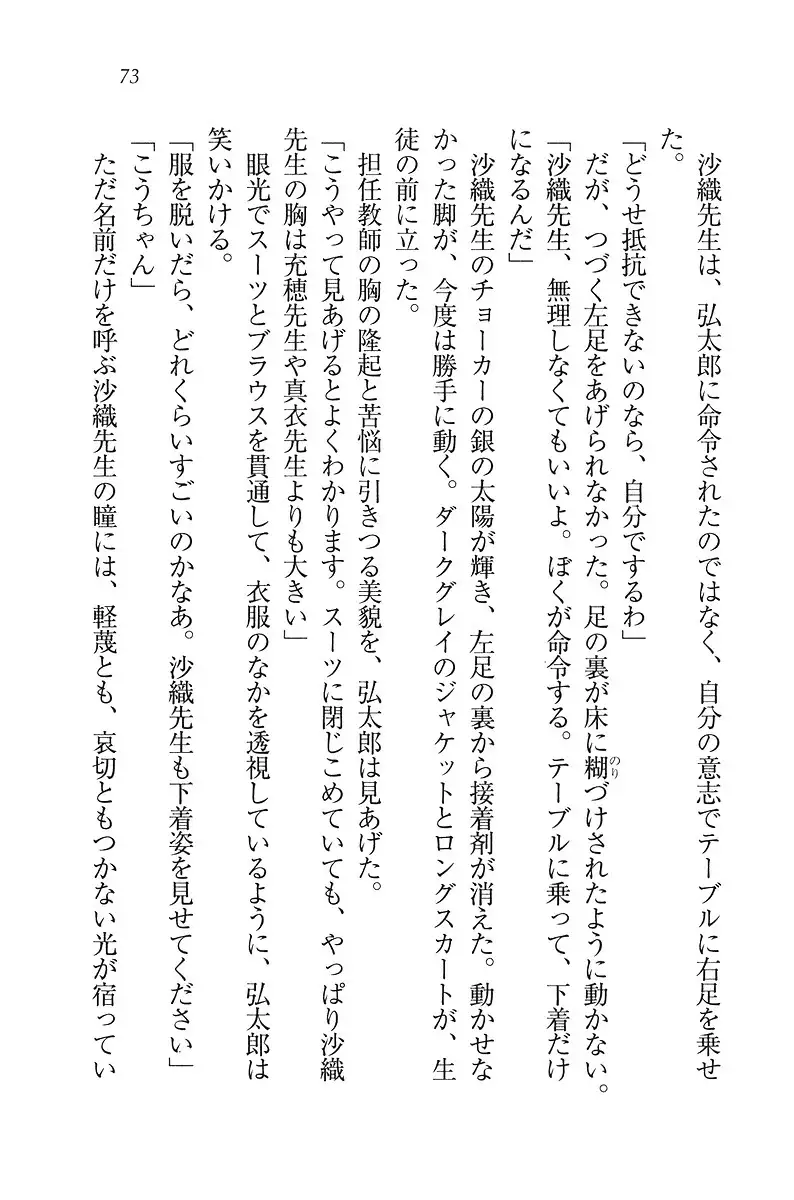 73
沙織先生は、弘太郎に命令されたのではなく、自分の意志でテーブルに右足を乗せ
た。
「どうせ抵抗できないのなら、自分でするわ」
だが、つづく左足をあげられなかった。足の裏が床に糊づけされたように動かない。
のり
「沙織先生、無理しなくてもいいよ。ぼくが命令する。テーブルに乗って、下着だけ
になるんだ」
沙織先生のチョーカーの銀の太陽が輝き、左足の裏から接着剤が消えた。動かせな
かった脚が、今度は勝手に動く。ダークグレイのジャケットとロングスカートが、生
徒の前に立った。
担任教師の胸の隆起と苦悩に引きつる美貌を、弘太郎は見あげた。
「こうやって見あげるとよくわかります。スーツに閉じこめていても、やっぱり沙織
先生の胸は充穂先生や真衣先生よりも大きい」
眼光でスーツとブラウスを貫通して、衣服のなかを透視しているように、弘太郎は
笑いかける。
「服を脱いだら、どれくらいすごいのかなあ。沙織先生も下着姿を見せてください」
「こうちゃん」
ただ名前だけを呼ぶ沙織先生の瞳には、軽蔑とも、哀切ともつかない光が宿ってい